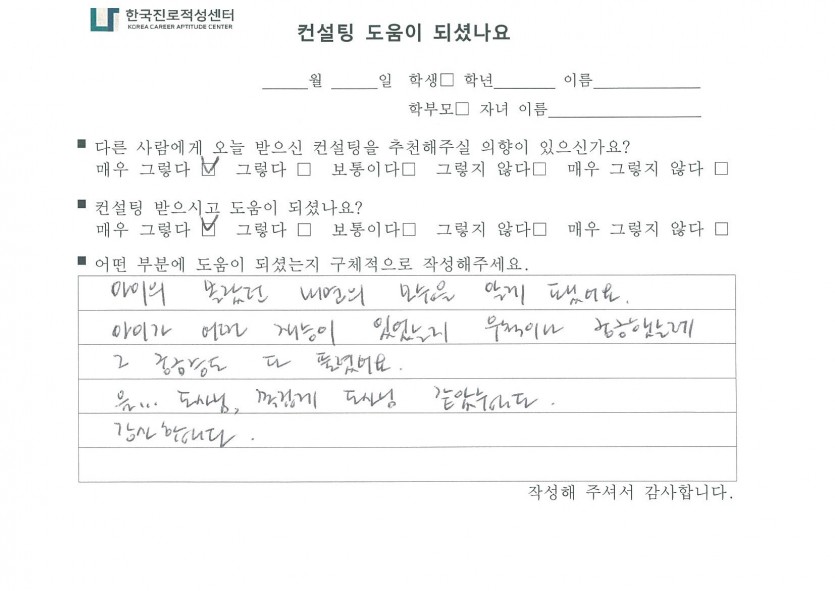 한국진로적성센터
KOREA CAREER APTITUDE CENTER
컨설팅 도움이 되셨나요
_____월 _____일 학생□ 학년_______ 이름____________
학부모□ 자녀 이름_________________
■ 다른 사람에게 오늘 받으신 컨설팅을 추천해주실 의향이 있으신가요?
매우 그렇다 ☑ 그렇다 □ 보통이다□ 그렇지 않다□ 매우 그렇지 않다 □
■ 컨설팅 받으시고 도움이 되셨나요?
매우 그렇다 ☑ 그렇다 □ 보통이다□ 그렇지 않다□ 매우 그렇지 않다 □
■ 어떤 부분에 도움이 되셨는지 구체적으로 작성해주세요.
아이의 몰랐던 내면의 모습을 알게 됐어요.
아이가 어떤 재능이 있었는지 무척이나 궁금했는데
그 궁금증도 다 풀렸어요.
음... 도사님, 족집게 도사님 같았습니다.
감사합니다.
작성해 주셔서 감사합니다.